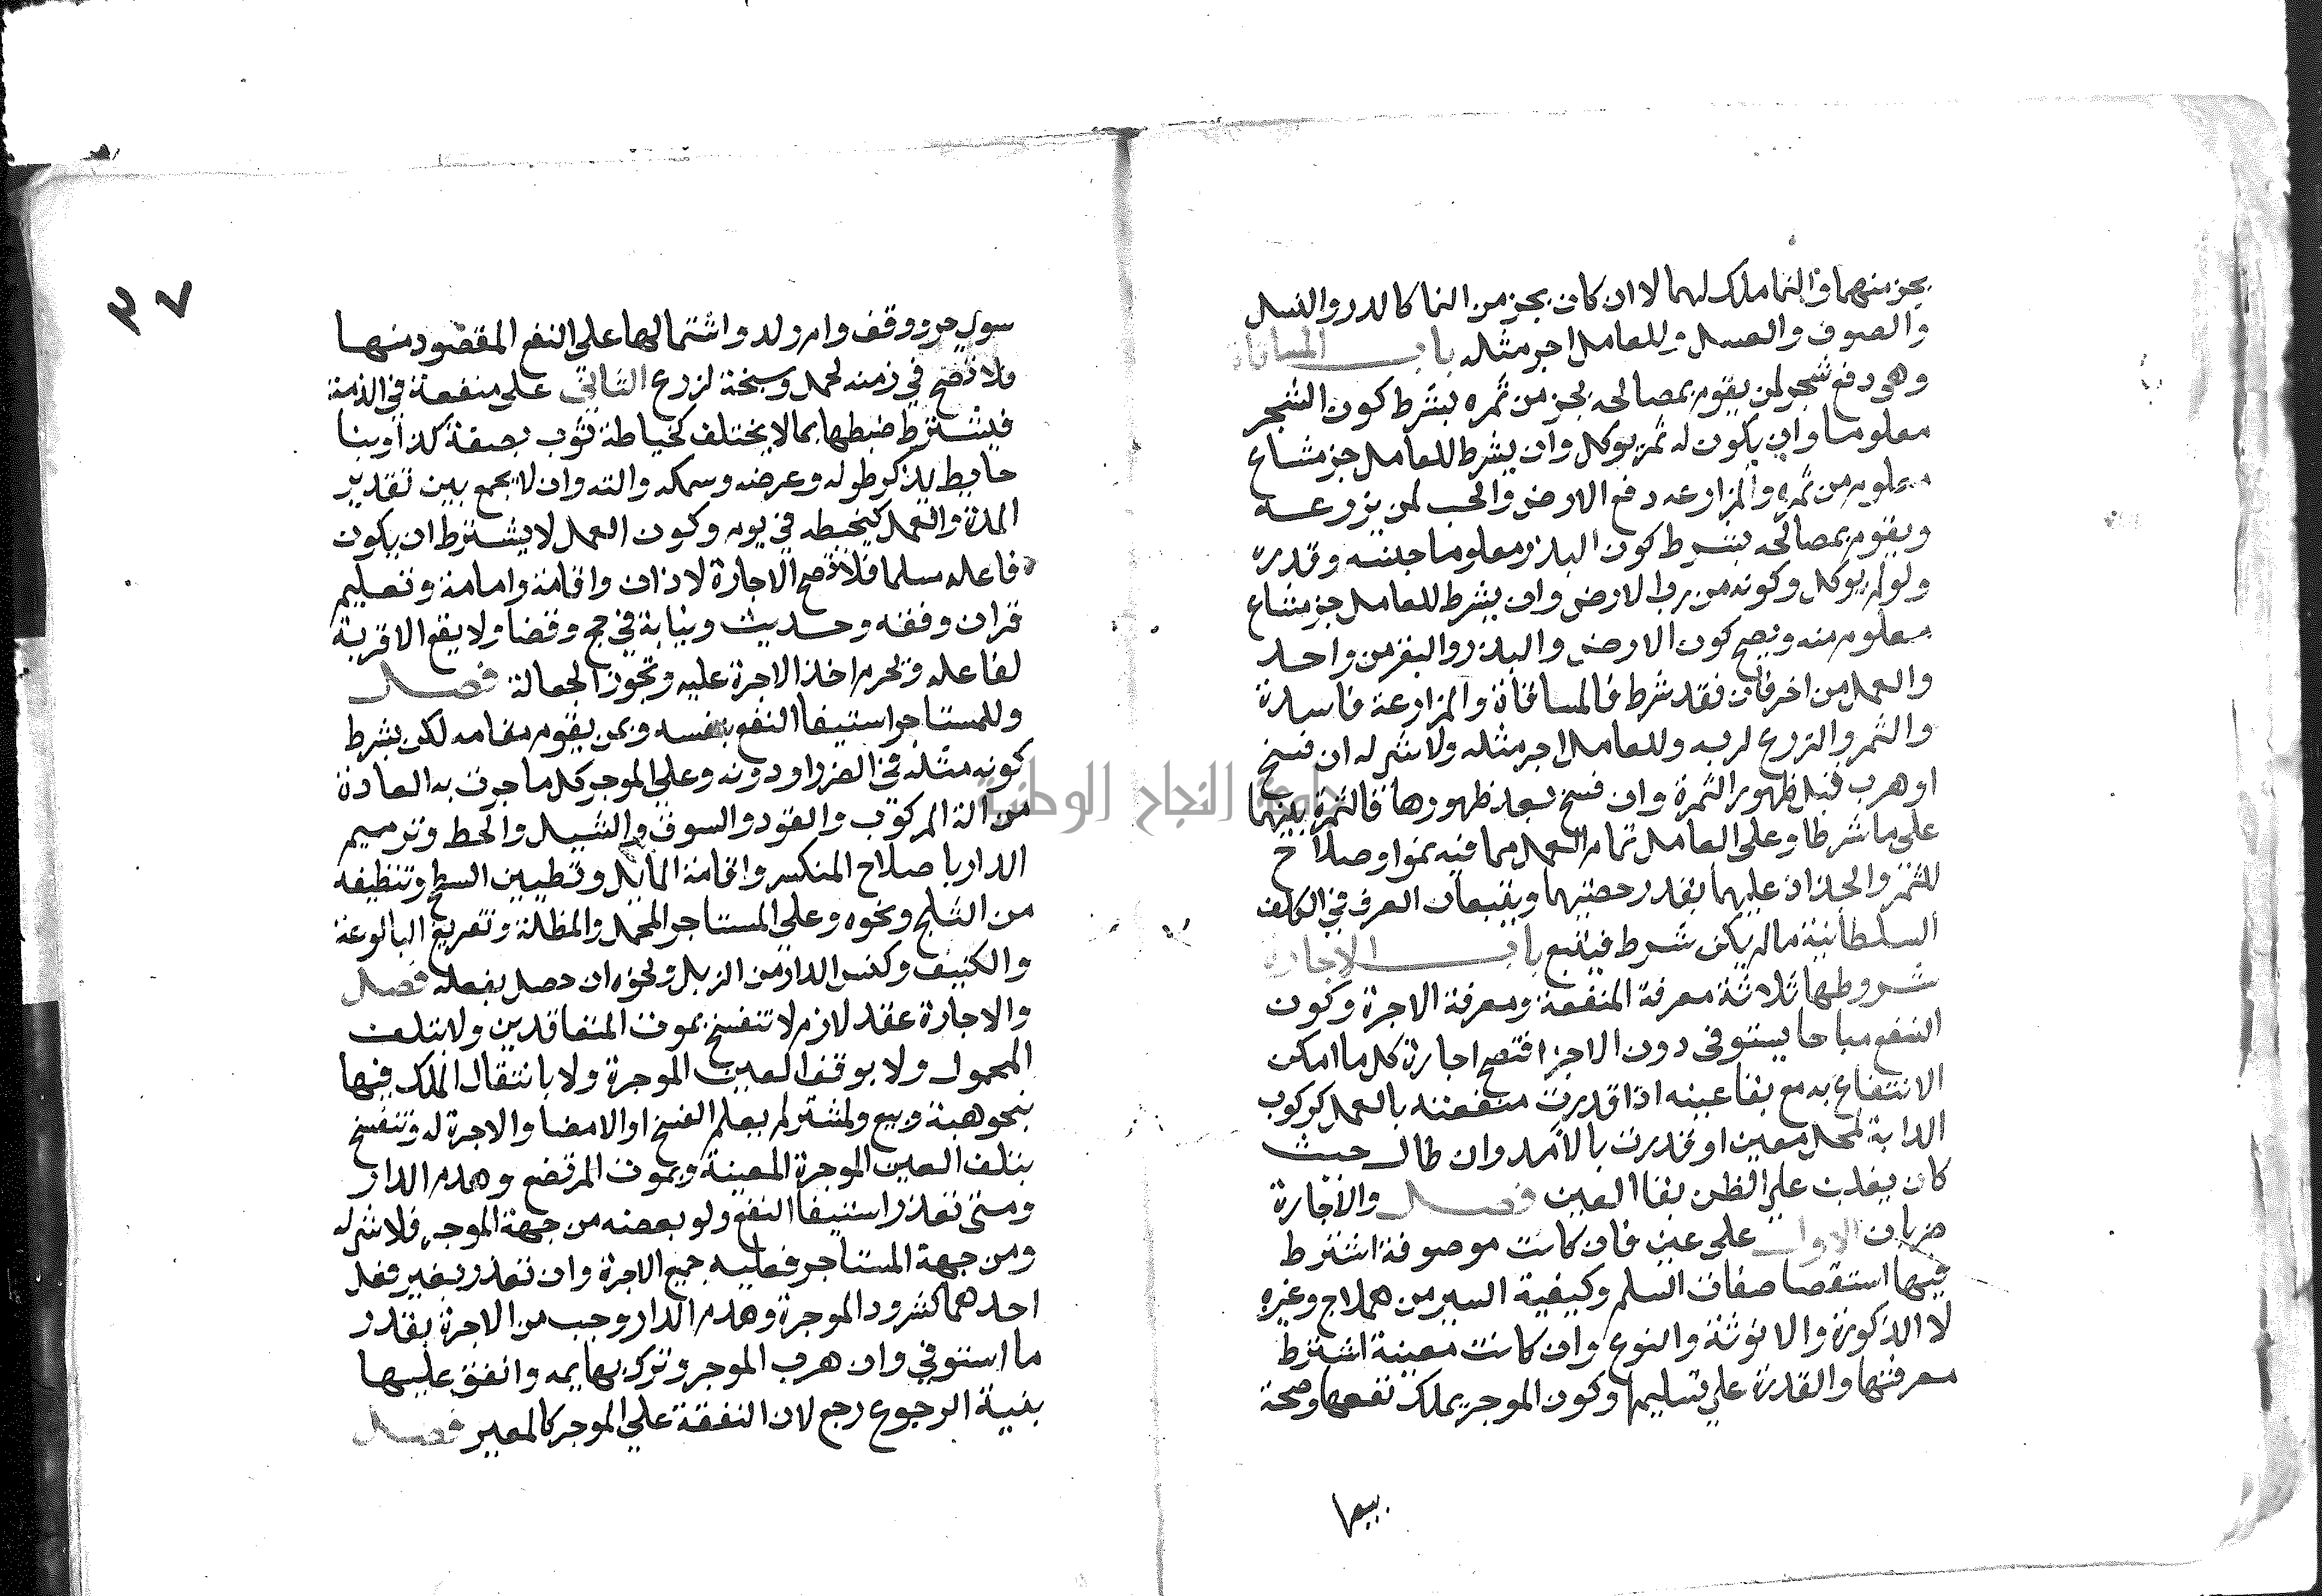 بجز منهما والنما ملك لهما لا ان كان بجز من النما كالدر والنسل
والصوف والعسل وللعامل اجر مثله باب المساقاة
وهي دفع شجر لمن يقوم بمصالحه بجز من ثمره بشرط كون الشجر
معلوما وان يكون له ثمر يوكل وان يشرط للعامل جز مشاع
معلوم من ثمره والمزارعه دفع الارض والحب لمن يزرعه
ويقوم بمصالحه بشرط كون البذر معلوما جنسه وقدره
ولو لم يوكل وكونه من رب الارض وان يشرط للعامل جز مشاع
معلوم منه ويصح كون الارض والبذر والبقر من واحد
والعمل من اخر فان فقد شرط فالمساقاة والمزارعة فاسدة
والثمر والزرع لربه وللعامل اجر مثله ولا شي له ان فسخ
او هرب قبل ظهور الثمرة وان فسخ بعد ظهورها فالثمرة بينهما
على ما شرطا وعلى العامل تمام العمل مما فيه نموا وصلاح
للثمر والجذاذ عليهما بقدر حصتيهما ويتبعان العرف في الكلف
السلطانية ماله يكن شرط فيتبع باب الاجارة
شروطها ثلاثة معرفة المنفعة ومعرفة الاجرة وكون
النفع مباحا يستوفى دون الاجزا فتصح اجارة كل ما امكن
الانتفاع به مع بقا عينه اذا قدرت منفعته بالعمل كركوب
الدابة لمحل معين او قدرت بالامد وان طال حيث
كان يغلب على الظن بقا العين فصل والاجارة
ضربان الاول على عين فان كانت موصوفة اشترط
فيها استقصا صفات السلم وكيفية السير من هملاج وغيره
لا الذكورة والانوثة والنوع وان كانت معينة اشترط
معرفتها والقدرة على تسليمها وكون الموجر يملك نفعها وصحة
بيعها
٣٧
سوى حر ووقف وام ولد واشتمالها على النفع المقصود منها
فلا تصح في زمنه لحمل وسبخة لزرع الثاني على منفعة في الذمة
فيشترط ضبطها بما لا يختلف كخياطة ثوب بصفة كذا او بنا
حايط يذكر طوله وعرضه وسمكه والته وان لا يجمع بين تقدير
المدة والعمل كيخيطه في يوم وكون العمل لا يشترط ان يكون
فاعله مسلما فلا تصح الاجارة لاذان واقامة وامامة وتعليم
قران وفقه وحديث ونيابة في حج وقضا ولا يقع الا قربة
لفاعله ويحرم اخذ الاجرة عليه وتجوز الجعالة فصل
وللمستاجر استيفا النفع بنفسه وبمن يقوم مقامه لكن بشرط
كونه مثله في الضرر او دونه وعلى الموجر كل ما جرت به العادة
من الة المركوب والقود والسوق والشيل والحط وترميم
الدار باصلاح المنكسر واقامة المايل وتطيين السطح وتنظيفه
من الثلج ونحوه وعلى المستاجر المحمل والمظلة وتفريغ البالوعة
والكنيف وكنس الدار من الزبل ونحوه ان حصل بفعله فصل
والاجارة عقد لازم لا تنفسخ بموت المتعاقدين ولا بتلف
المحمول ولا بوقف العين الموجرة ولا بانتقال الملك فيها
بنحو هبة وبيع ولمشتر لم يعلم الفسخ او الامضا والاجرة له وتنفسخ
بتلف العين الموجرة المعينة وبموت المرتضع وهدم الدار
ومتى تعذر استيفا النفع ولو بعضه من جهة الموجر فلا شي له
ومن جهة المستاجر فعليه جميع الاجرة وان تعذر بغير فعل
احدهما كشرود الموجرة وهدم الدار وجب من الاجرة بقدر
ما استوفي وان هرب الموجر وترك بهايمه وانفق عليها
بنية الرجوع رجع لان النفقة على الموجر كالمعير فصل
جامعة النجاح الوطنية